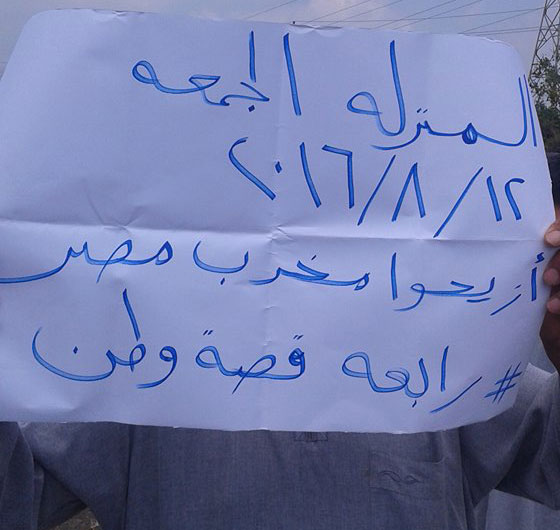 المنزله الجمعه
٢٠١٦/٨/١٢
أزيحوا مخرب مصر
#رابعه قصة وطن